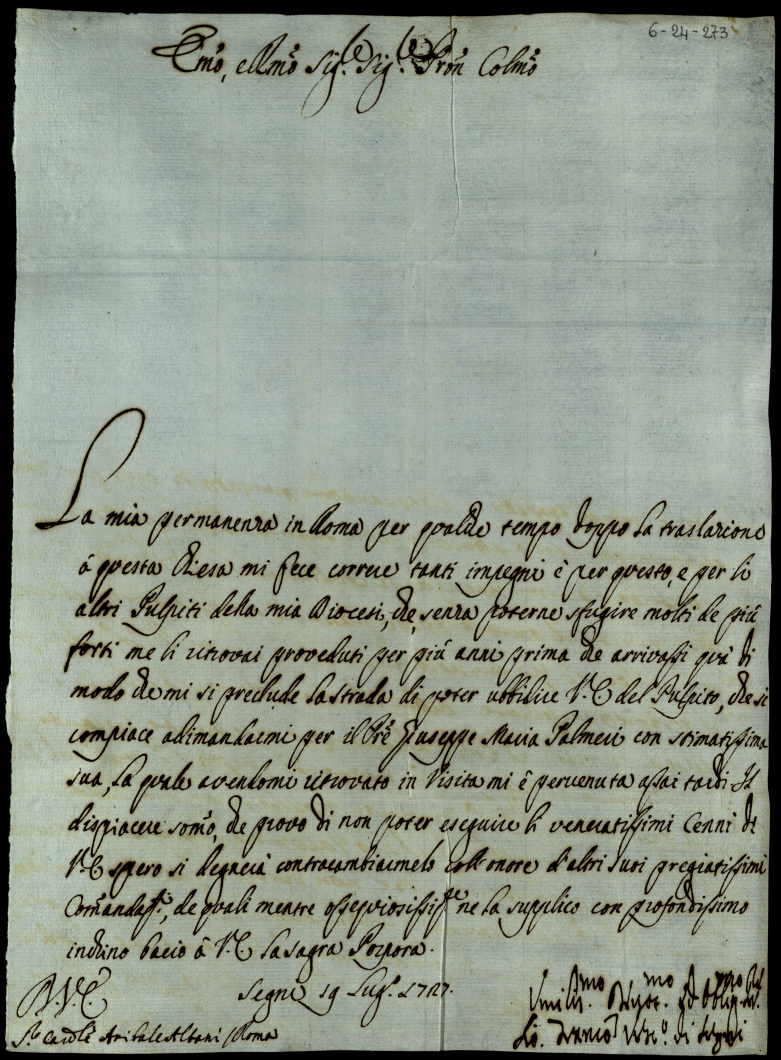 6-24-273
Emo, e Rmo Sig.re Sig.re Pron Colmo
La mia permanenza in Roma per qualche tempo doppo la traslazione
á questa Chiesa mi fece correre tanti impegni è per questo, e per li
altri Pulpiti della mia Diocesi, che, senza poterne sfugire molti de più
forti me li ritrovai proveduti per più anni prima che arrivassi quà di
modo che mi si preclude la strada di poter ubbilire V.E. del Pulpito, che si
compiace adimandarmi per il Pre Giuseppe Maria Palmeri con stimatissima
sua, la quale avendomi ritrovato in Visita mi è pervenuta assai tardi Il
dispiacere somo, che provo di non poter eseguire li veneratissimi Cenni di
V.E. spero si degnerà contracambiarmelo coll'onore d'altri suoi pregiatissimi
Comandamti, de quali mentre ossequiosissimte ne la supplico con profondissimo
inchino bacio à V.E. la sagra Porpora.
Segni 19 Lug.o 1727.
D.V.E.
Umiliss.mo Devot.mo ed Obblig.mo
S.r Card.le Anibale Albani / Roma
Vesc.o di Segni